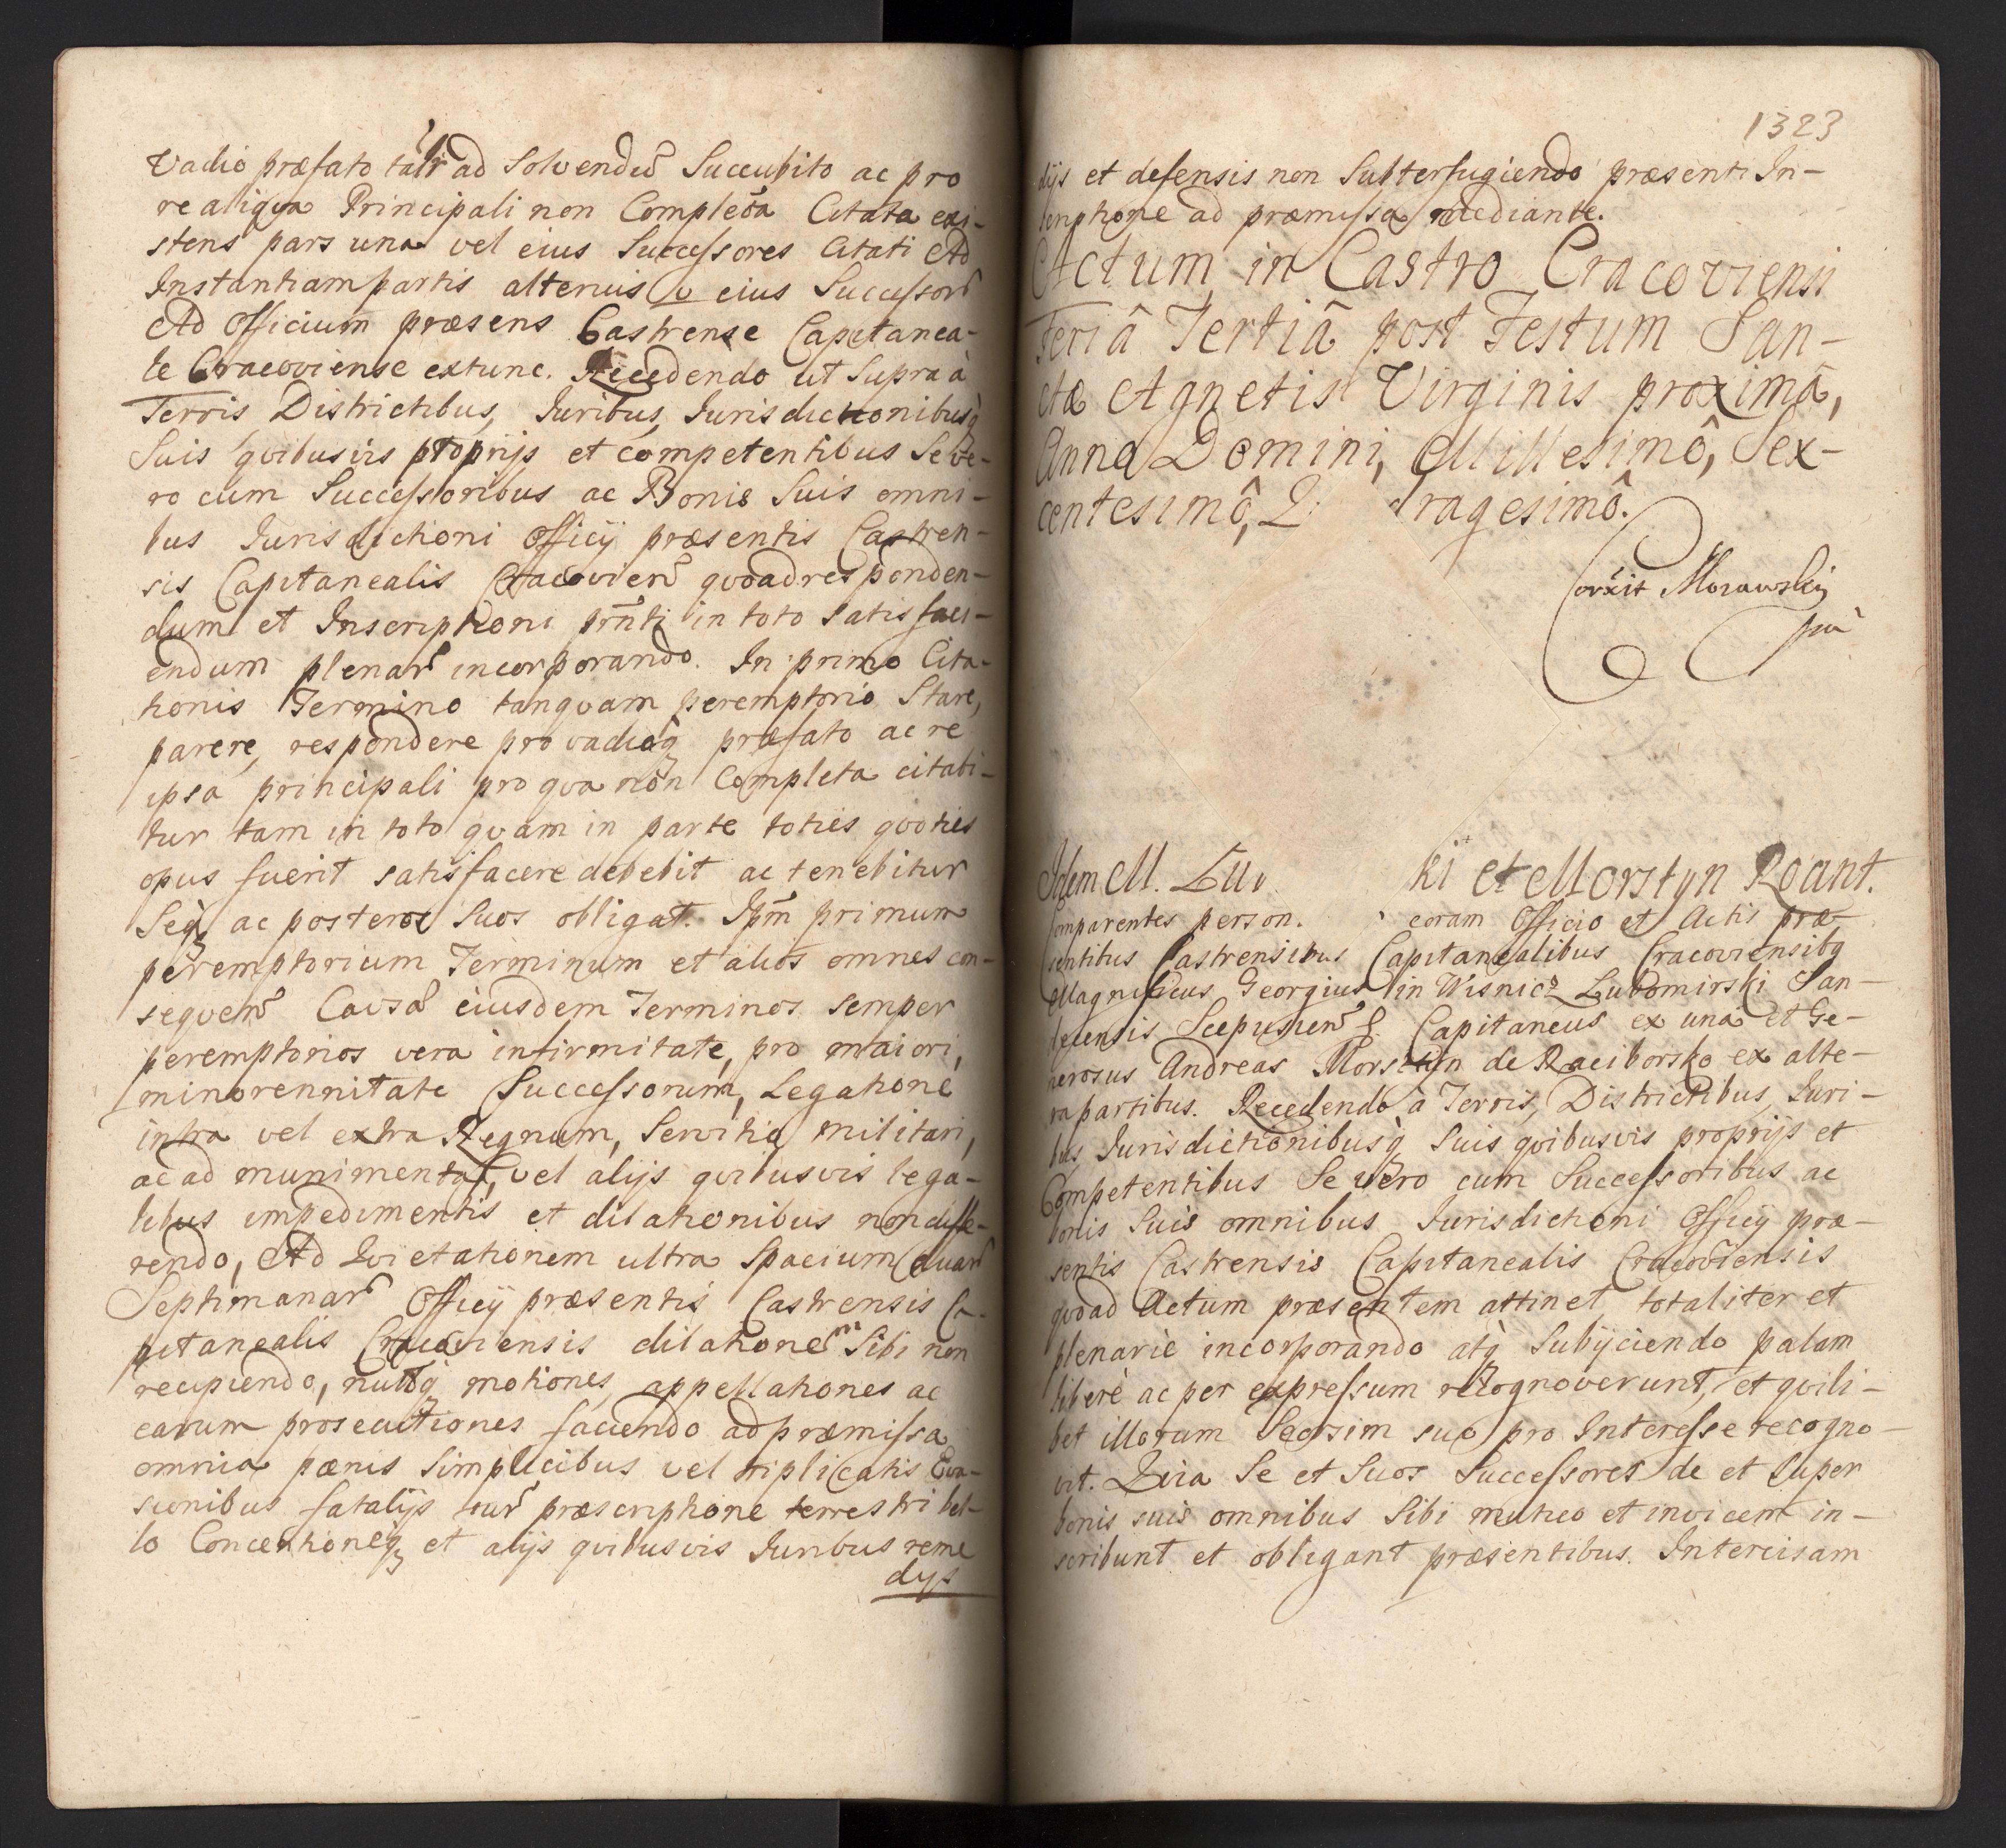 Vadio præfato tali ad Solvendũ Succubito ac pro
re aliqua Principali non Completa Citata exi-
stens pars una vel eius Successores Citati Ad
Instantiam partis alterius v eius Successorũ
Ad Officium præsens Castrense Capitanea-
le Cracoviense extunc. Recedendo ut Supra à
Terris Districtibus, Iuribus, Iurisdictionibusq
Suis quibusvis proprijs et competentibus Se ve-
ro cum Successoribus ac Bonis Suis omni-
bus Iurisdictioni Officij præsentis Castren-
sis Capitanealis Cracovien quoad responden-
dum et Inscriptioni prñti in toto satisfaci-
endum plenar incorporando. In primo Cita-
tionis Termino tanquam peremptorio Stare,
parere, respondere pro vadioq præfato ac re
ipsa principali pro qva non Completa citabi-
tur tam in toto qvam in parte toties qvoties
opus fuerit satisfacere debebit ac tenebitur
Seq ac posteros Suos obligat. Ipm primum
peremptorium Terminum et alios omnes con-
sequen Causa eiusdem Terminos semper
peremptorios vera infirmitate, pro maiori,
minorennitate Successorum, Legatione
intra vel extra Regnum, Servitio militari,
ac ad munimenta, vel alijs qvibusvis lega-
libus impedimentis et dilationibus non diffe-
rendo, Ad Qvietationem ultra Spacium duar
Septimanar Officij præsentis Castrensis Ca-
pitanealis Cracoviensis dilationem Sibi non
recipiendo, nullasq motiones, appellationes ac
earum prosecutiones faciendo ad præmissa
omnia pœnis Simplicibus vel triplicatis Eva-
sionibus fatalijs iur præscriptione terrestri bel-
lo Concertioneq et alijs qvibusvis Iuribus reme
dijs
1323
dijs et defensis non Subterfugiendo præsenti In-
scriptione ad præmissa mediante.
Actum in Castro Cracoviensi
Feriâ Tertiâ post Festum San-
ctæ Agnetis Virginis proximâ,
Anno Domini, Millesimô, Sex-
centesimô, Q dragesimô.
Corrxit Morawskij
mp
Idem M. Lu ki et Morstyn Rcant.
Comparentes person. coram Officio et Actis præ-
sentibus Castrensibus Capitanealibus Cracoviensibq
Magnificus Georgius in Wisnicz Lubomirski San-
decensis Scepusien &. Capitaneus ex una et Ge-
nerosus Andreas Morsztyn de Raciborsko ex alte-
ra partibus. Recedendo à Terris, Districtibus, Iuri-
bus Iurisdictionibusq Suis qvibusvis proprijs et
Competentibus Se vero cum Successoribus ac
bonis Suis omnibus Iurisdictioni Officij præ-
sentis Castrensis Capitanealis Cracoviensis
qvoad Actum præsentem attinet totaliter et
plenariè incorporando atq Subijciendo palam
liberè ac per expressum recognoverunt, et qvili-
bet illorum Seorsim suo pro Interesse recogno-
vit. Qvia Se et Suos Successores de et Super
bonis suis omnibus Sibi mutuo et invicem in-
scribunt et obligant præsentibus. Intercisam